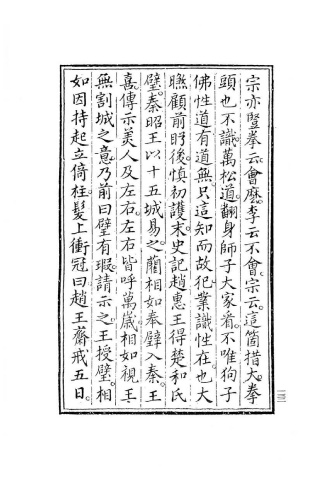 宗亦竪拳云會麽李云不會宗云這箇措大拳
頭也不識萬松道翻身師子大家看不唯狗子
佛性道有道無只這知而故犯業識性在也大
曕顧前眄後慎初護末史記趙惠王得楚和氏
璧秦昭王以十五城易之藺相如奉璧入秦王
喜傳示美人及左右左右皆呼萬歲相如視王
無割城之意乃前曰璧有瑕請示之王授璧相
如因持起立倚柱髮上衝冠曰趙王齋戒五日